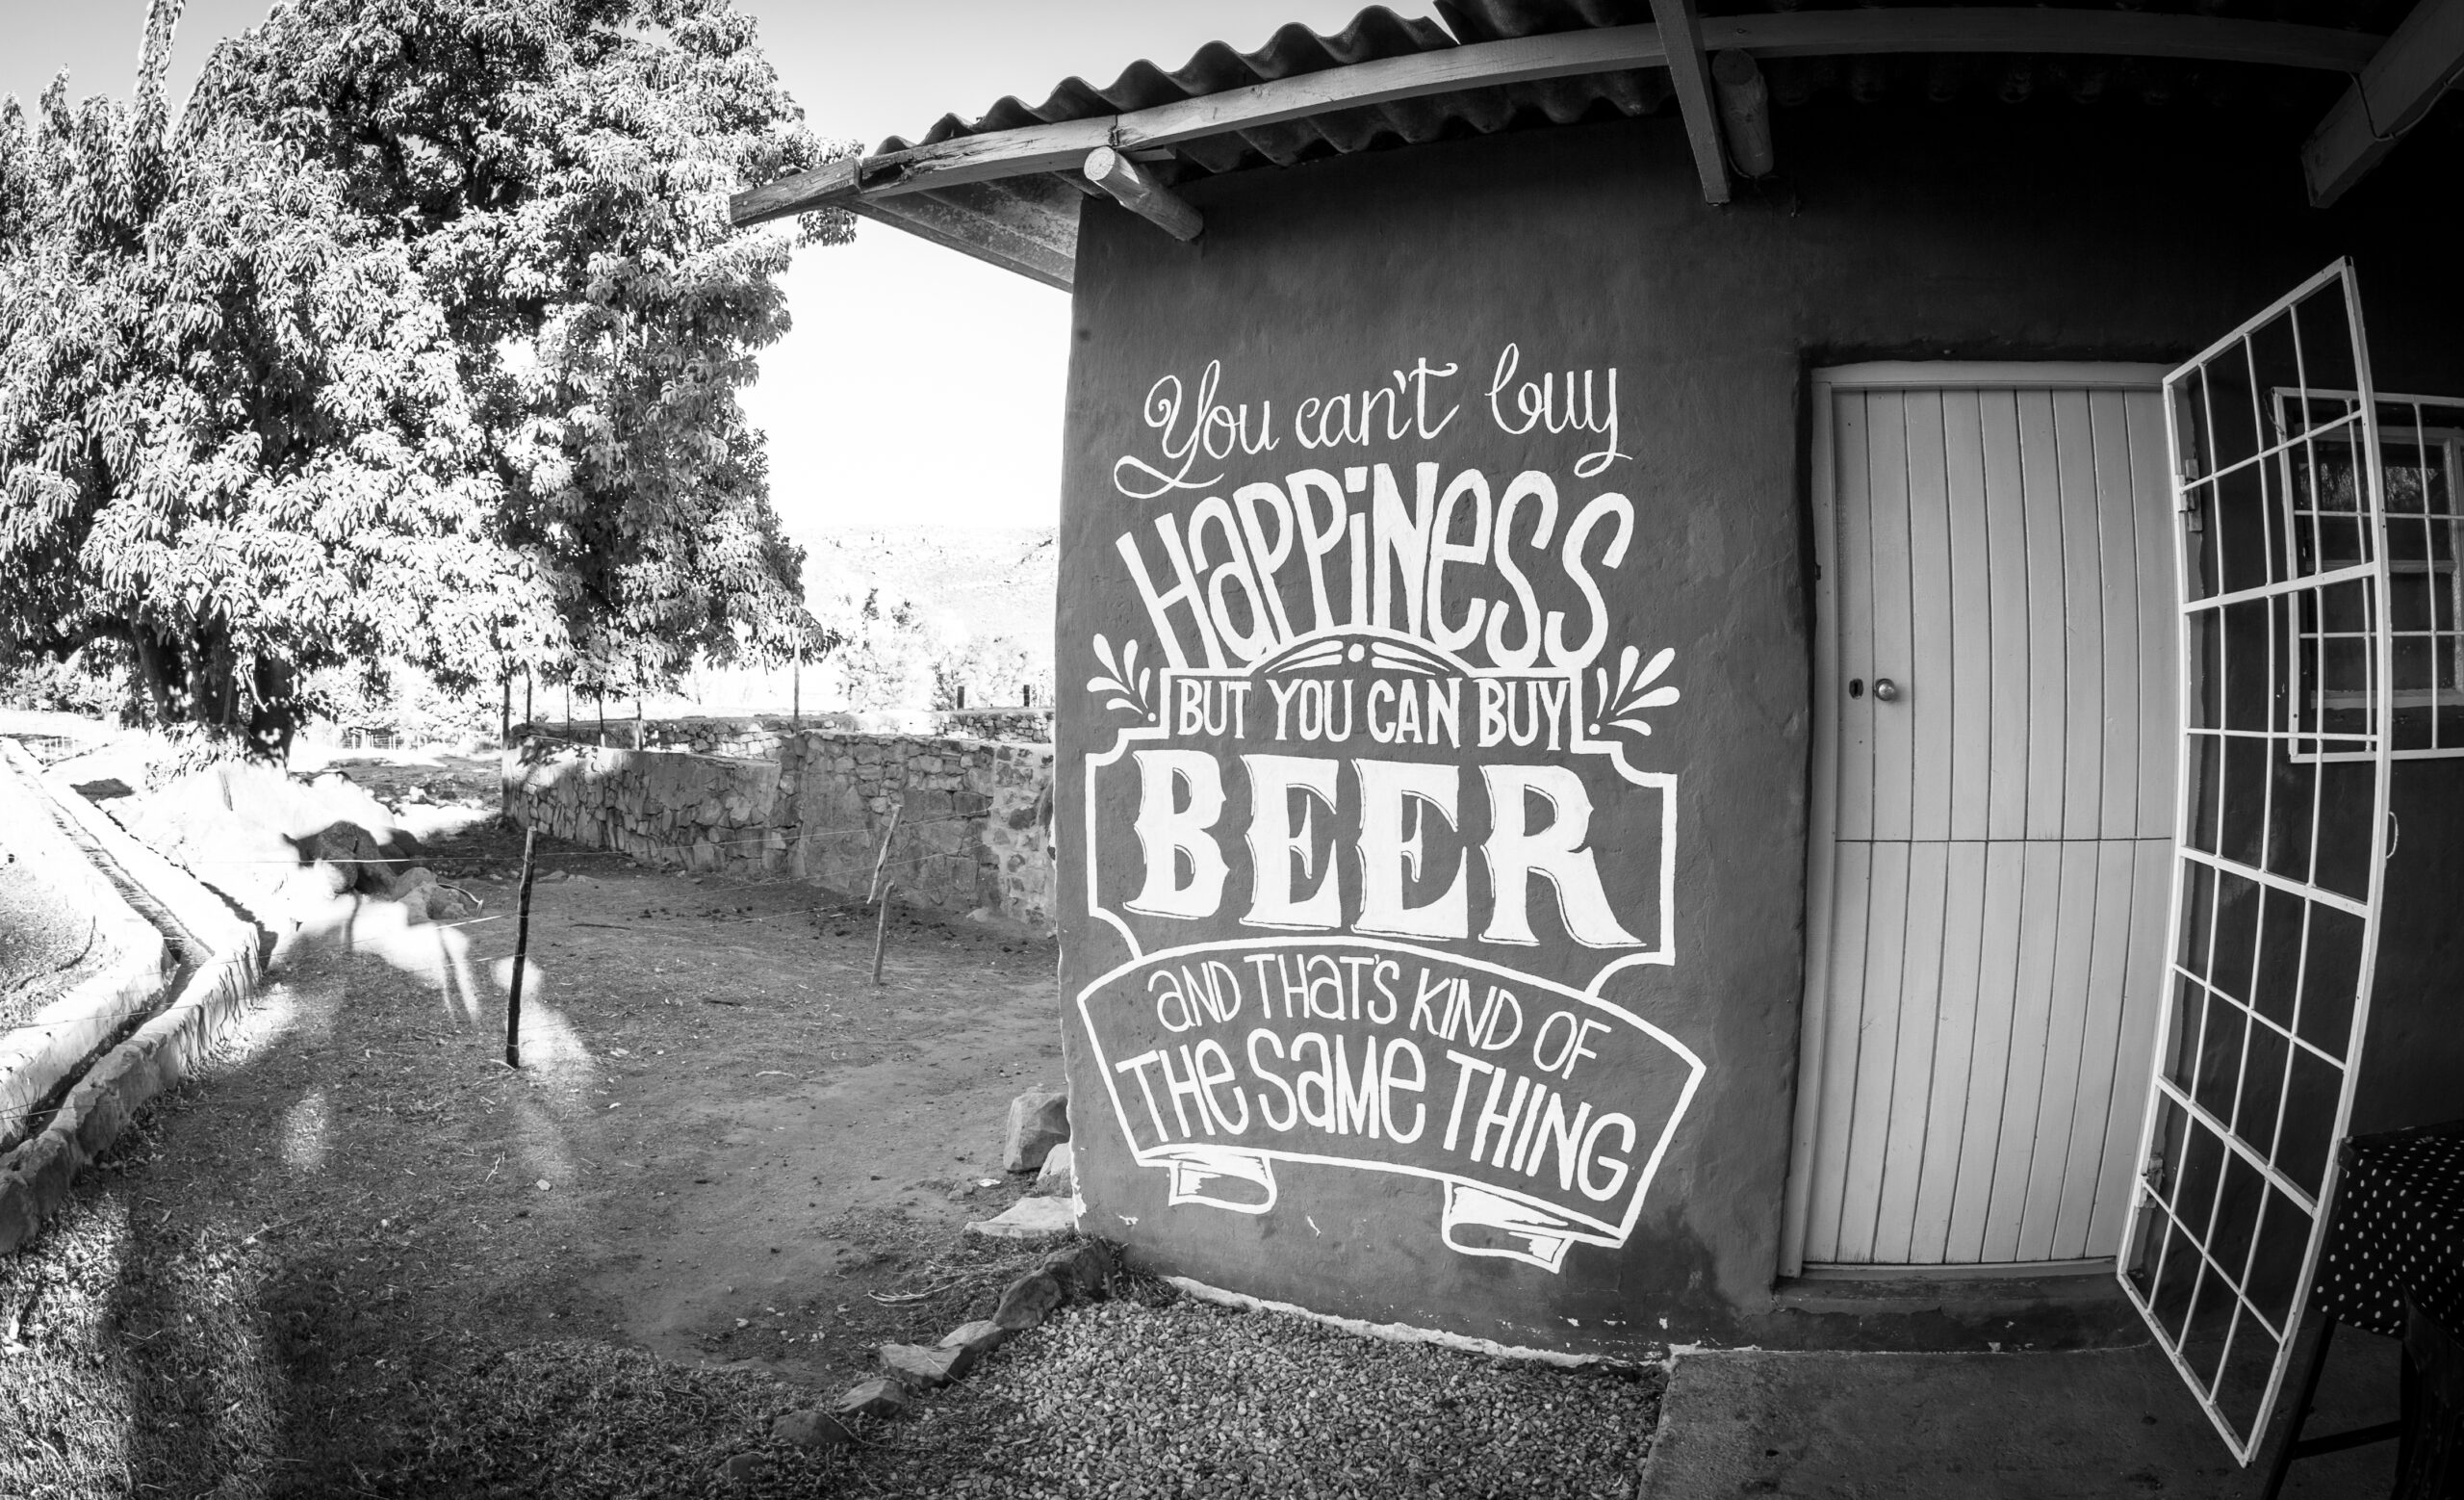 You can't buy
HaPPiNess
BUT YOU CAN BUY
BEER
aND THaT'S KIND OF
THe SaMe THING